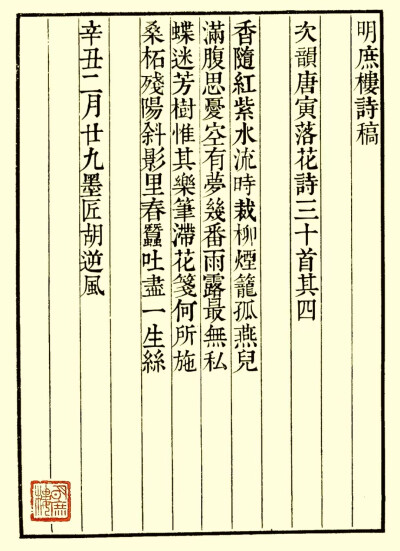 明庶樓詩稿
次韻唐寅落花詩三十首其四
香隨紅紫水流時裁柳煙籠孤燕兒
滿腹思憂空有夢幾番雨露最無私
蝶迷芳樹惟其樂筆滯花箋何所施
桑柘殘陽斜影里春蠶吐盡一生絲
辛丑二月廿九墨匠胡逆風
明庶樓